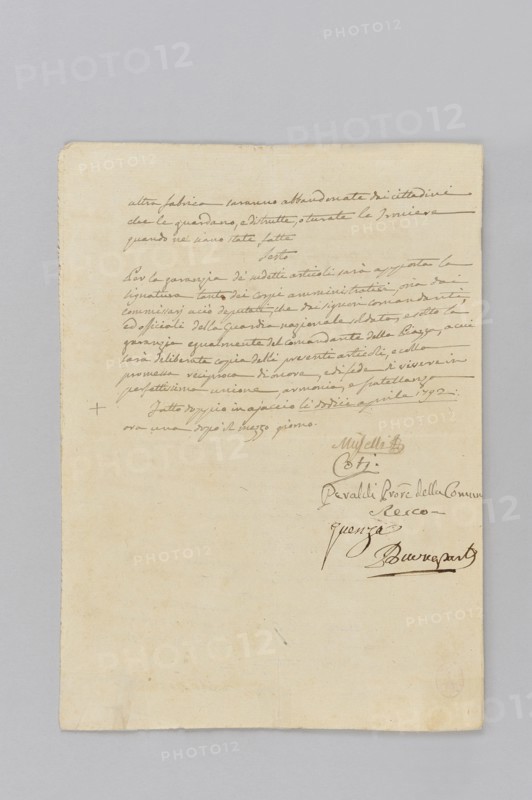 altra fabrica saranno abbandonate dai cittadini
che le guardano, e distrutte, oturate le
quando ne siano state fatte
Sesto
Per la garanzia de' sudetti articoli sarà apposta la
signatura tanto dei corpi amministrativi, ma dai
commissarj a ciò deputati, che dai signori comandanti,
ed officiali della Guardia nazionale soldata, e sotto la
garanzia egualmente del comandante della Piazza, a cui
sarà deliberata copia delli presenti articoli, e colla
promessa reciproca di onore, e di fede di vivere in
perfettissima unione, armonia, e fratellanza
Fatto doppio in ajaccio li dodici aprile 1792.
ora una dopo il mezzo giorno.
Coti.
Peraldi Prore della Comun
Quenza
Buonaparte
PHOTO12
PHOTO12
PHOTO12
PHOTO12
PHOTO12
PHOTO12
PHOTO12